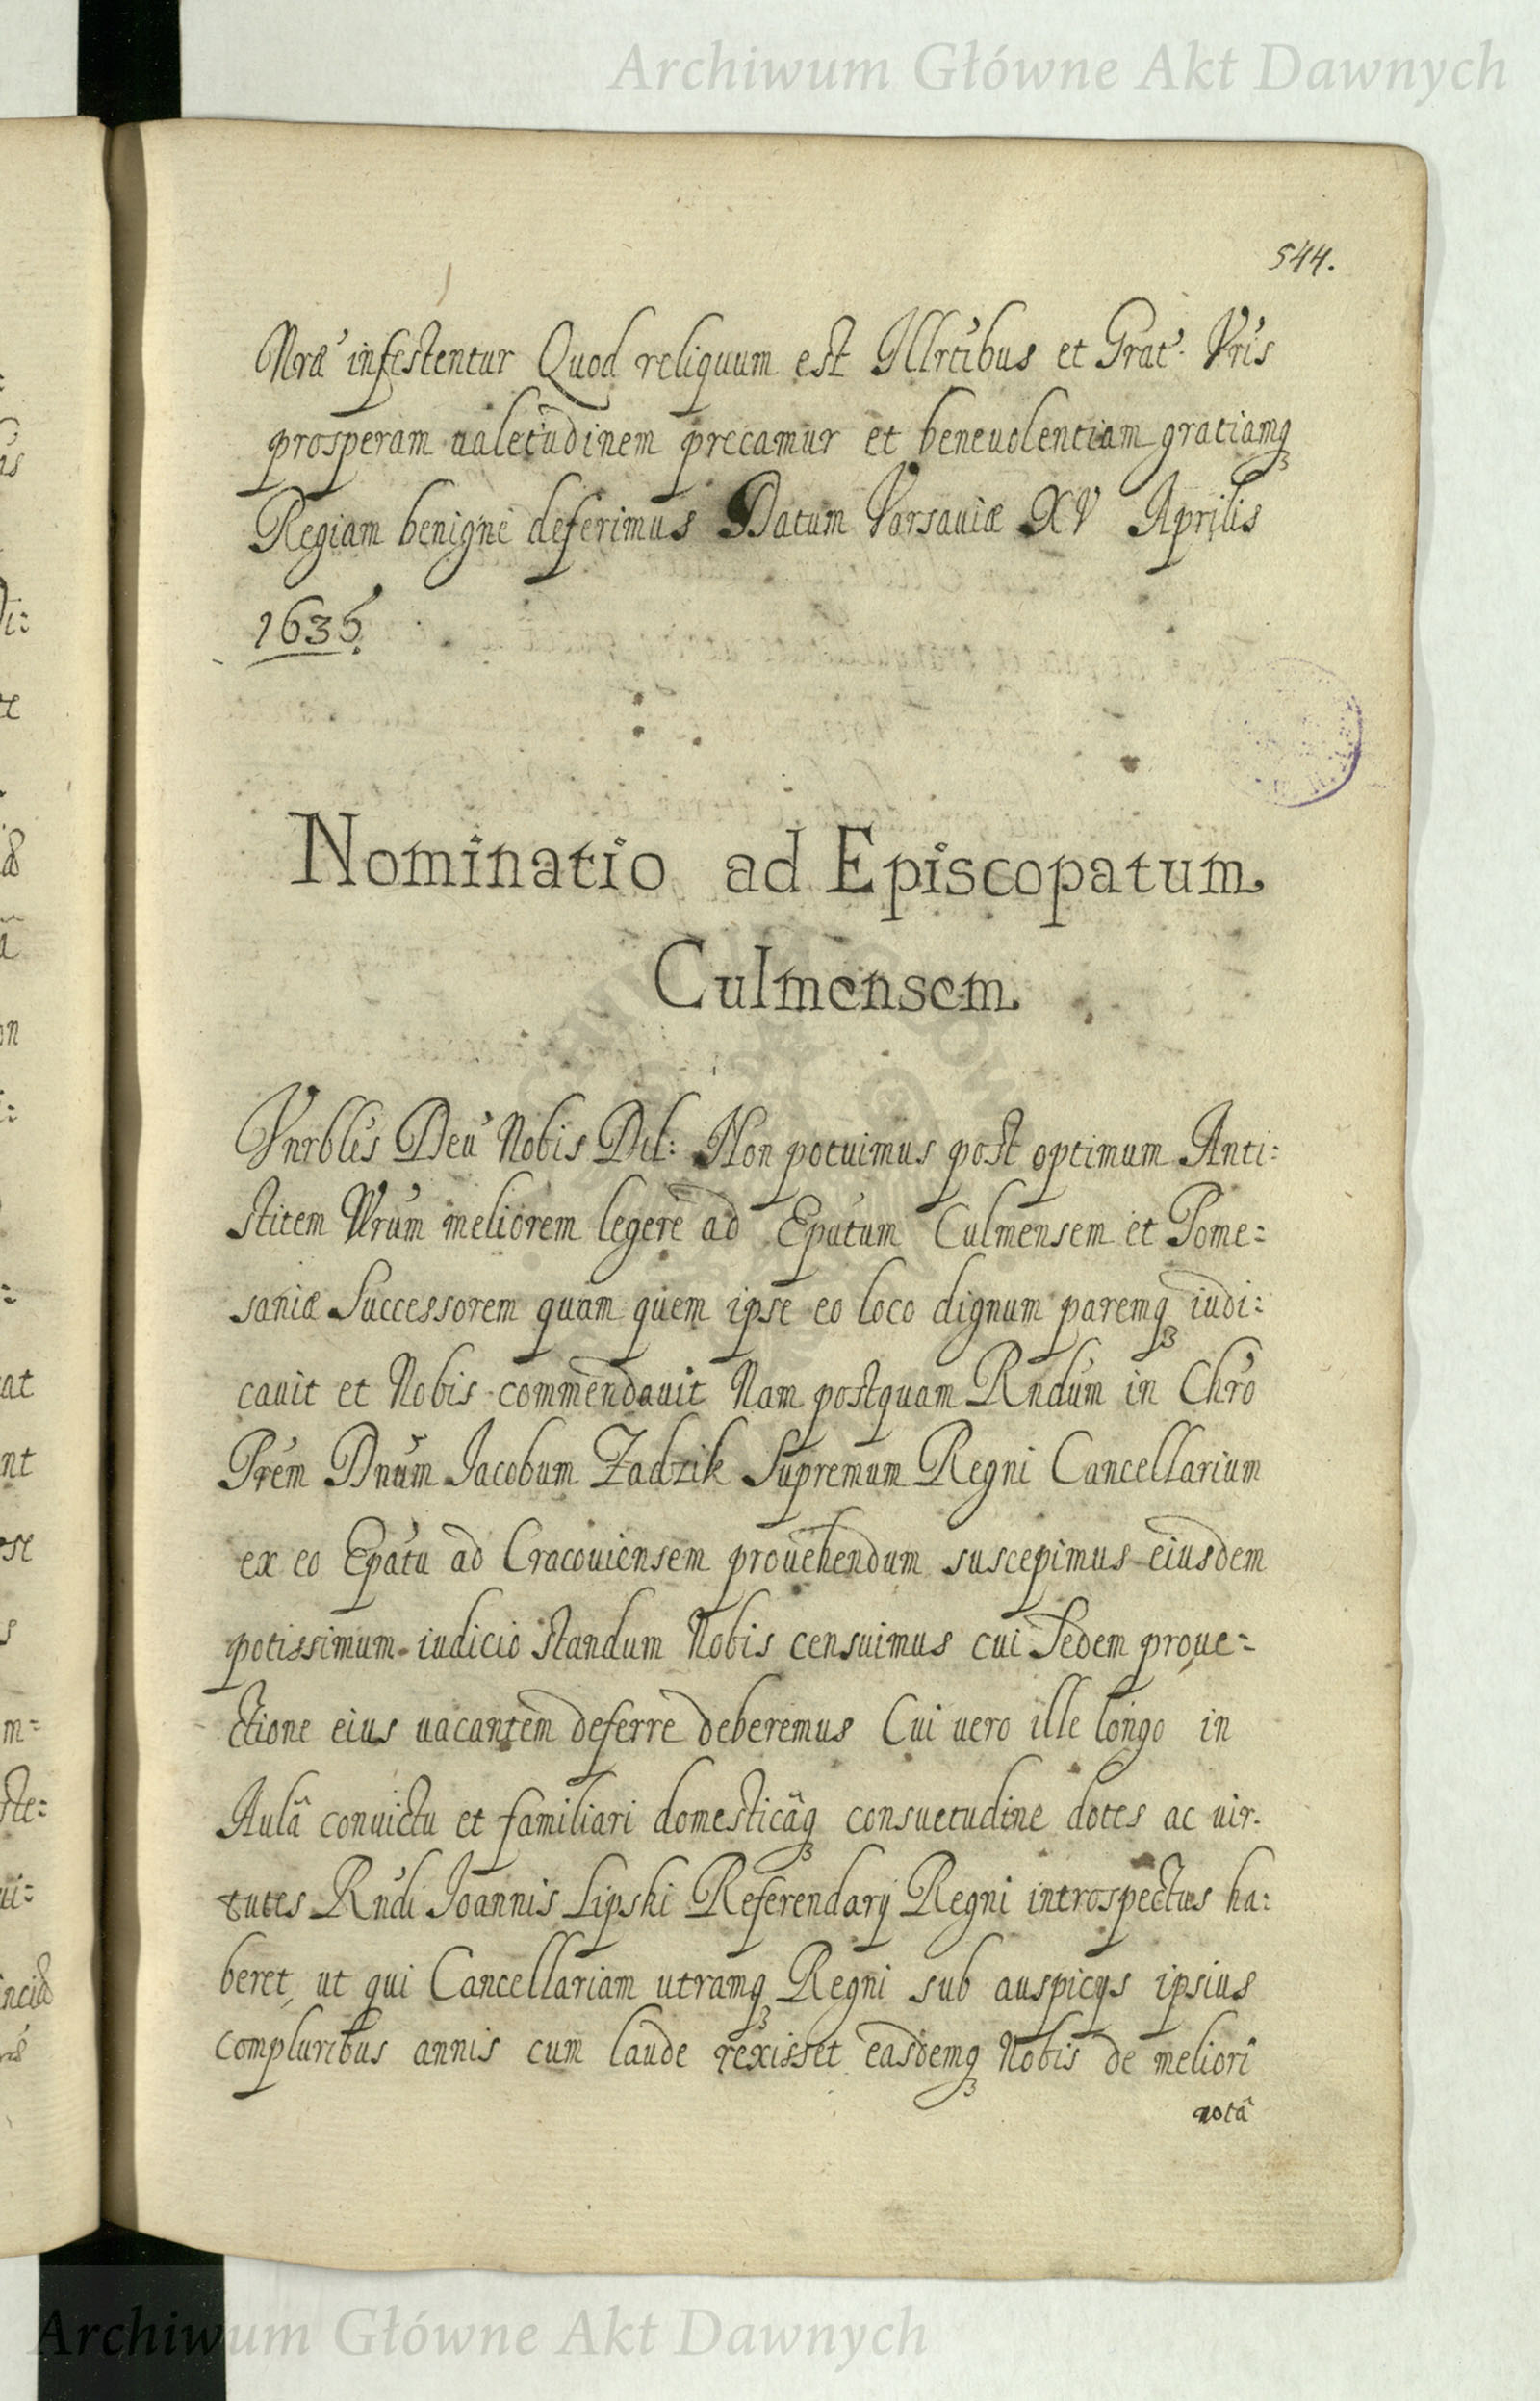 Archiwum Główne Akt Dawnych
544.
Nræ infestentur Quod reliquum est Illrtibus et Grat. Vris
prosperam ualetudinem precamur et beneuolentiam gratiamq3
Regiam benigne deferimus Datum Varsauiæ XV Aprilis
1635
Nominatio ad Episcopatum
Culmensem
Vnrblis Deu Nobis Dil: Non potuimus post optimum Anti:
stitem Vrum meliorem legere ad Epatum Culmensem et Pome=
saniæ Successorem quam quem ipse eo loco dignum paremq3 iudi:
cauit et Nobis commendauit Nam postquam Rndum in Chro
Prem Dnum Jacobum Zadzik Supremum Regni Cancellarium
ex eo Epatu ad Cracouiensem prouehendum suscepimus eiusdem
potissimum iudicio standum Nobis censuimus cui Sedem proue=
ctione eius uacantem deferre deberemus Cui uero ille longo in
Aulâ conuictu et familiari domesticâq3 consuetudine dotes ac uir.
tutes Rndi Joannis Lipski Referendarij Regni introspectus ha:
beret, ut qui Cancellariam utramq3 Regni sub auspicijs ipsius
compluribus annis cum laude rexisset easdemq3 Nobis de meliori
notâ
Archiwum Główne Akt Dawnych